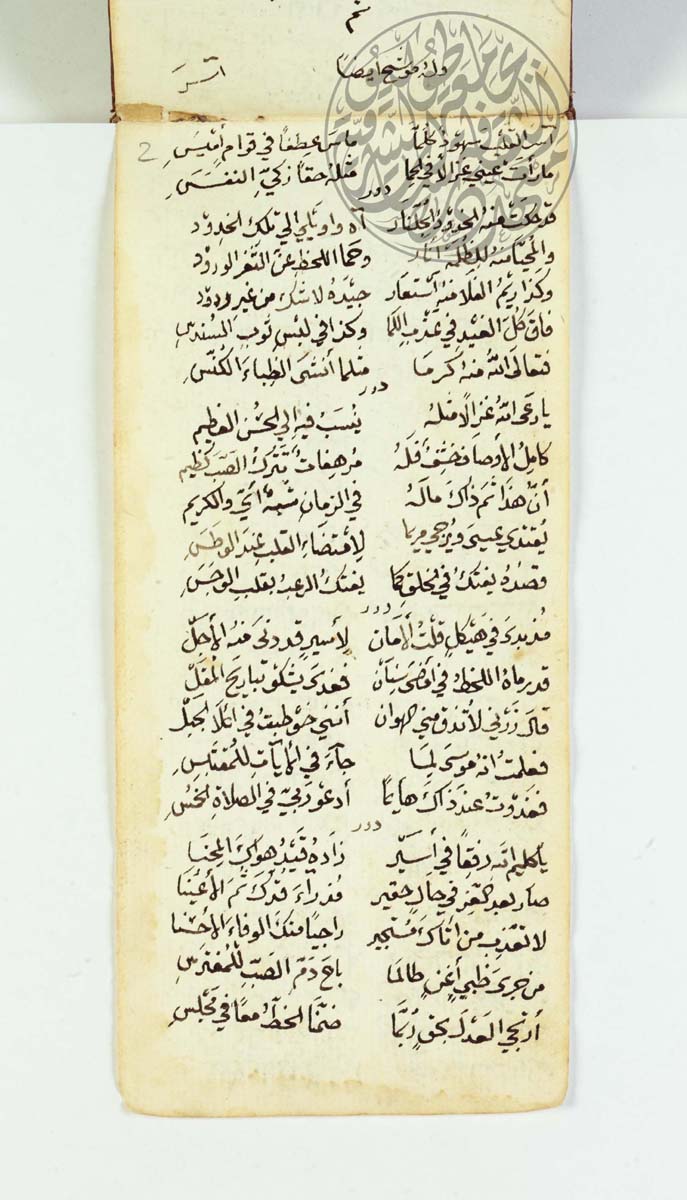 تم
وله موشح ايضاً
اسر
2
أسر القلب بمهود ماس عطفاً في قوام أميس
ما رأت عيني غزالاً في الحما مثله حقاً زكيّ النفس
دور
قد حكت منه الخدود الجلنار آه واويلي الي تلك الخدود
والمحيا منه للظلمة أنار وحما اللحظ عن الثغر الورود
وكذا ريم الفلا منه استعار جيده لا شك من غير ردود
فاق كل الغيد في عذب اللما وكذا في لبس ثوب السندس
فتعالى الله منه كرما مثلما أنشى الظباء الكنس
دور
يا رعى الله غزالاً مثله ينسب فيه الي الحسن العظيم
كامل الأوصاف خشف فله مرهفات تترك الصب كظيم
أن هذا ثم ذاك ماله في الزمان شبه أخي والكريم
يقتدي عيسى ويرجي مريما لاقتضاء القلب عند الوطس
قصده يفتك في الخلق كما يفتك الرعب بقلب الوجس
دور
مذ بدى في هيكل قلت الأمان لأسير قد دنى منه الأجل
قد رماه اللحظ في أمضى سنان فغدى يشكو تباريح المقل
قال زرني لا تذق مني الهوان أنني خوطبت في الملا الجبل
فعلمت انه موسى لما جآء في الآيات للمقتبس
فغدوت عند ذاك هايما أدعو ربي في الصلاة الخمس
دور
يا كليم الله رفقاً في أسير زاده قيد هواك المحنا
صار بعد العز في حال حقير مذ رآء قدك ثم الأعينا
لا تعذب من أتاك مستجير راجياً منك الوفاء الأحسنا
من جرى ظبي أغن طالما باح دم الصب للمفترس
أرتجي العدل بحق ربما ضمنا الحظ معاً في مجلس